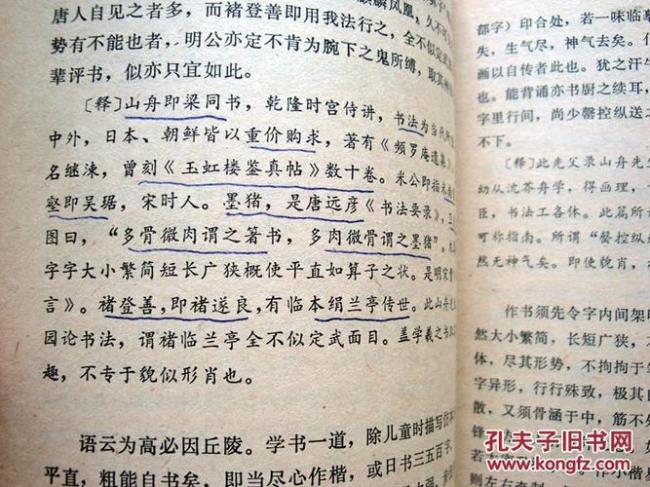 唐人自见之者多，而褚登善即用我法行之，全不似定武
势有不能也者，明公亦定不肯为腕下之鬼所缚，取其神
辈评书，似亦只宜如此。
〔释〕山舟即梁同书，乾隆时宫侍讲，书法为当代所
中外，日本、朝鲜皆以重价购求，著有《频罗庵遗集》
名继涑，曾刻《玉虹楼鉴真帖》数十卷。米公即指米
壑即吴琚，宋时人。墨猪，是唐远彦《书法要录》，王
图曰，“多骨微肉谓之著书，多肉微骨谓之墨猪”。
字字大小繁简短长广狭概使平直如算子之状。是明宋曹
言》。褚登善，即褚遂良，有临本绢兰亭传世。此山舟先
园论书法，谓褚临兰亭全不似定武面目。盖学羲之书
趣，不专于貌似形肖也。
语云为高必因丘陵。学书一道，除儿童时描写仿本
平直，粗能自书矣，即当尽心作楷，或日书三五百字，
都字）印合处，若一味临摹
失，生气尽，神气去矣。
画以自传者此也。犹之汗牛
能背诵亦书厨之续耳，
字里行间，尚少罄控纵送之
不下。
〔释〕此先父录山舟先生
幼从沈芥舟学，得画理，
臣，书法工各体。此篇所
可称指南。所谓“罄控纵
然无神气矣。即使貌肖，
作书须先令字内间架
然大小繁简，长短广狭，
体，尽其形势，不拘拘于
字异形，行行殊致，极其自
散，又须骨涵于中，筋不外
锋
则左右牵制
孔夫子旧书网
www.kongfz.com